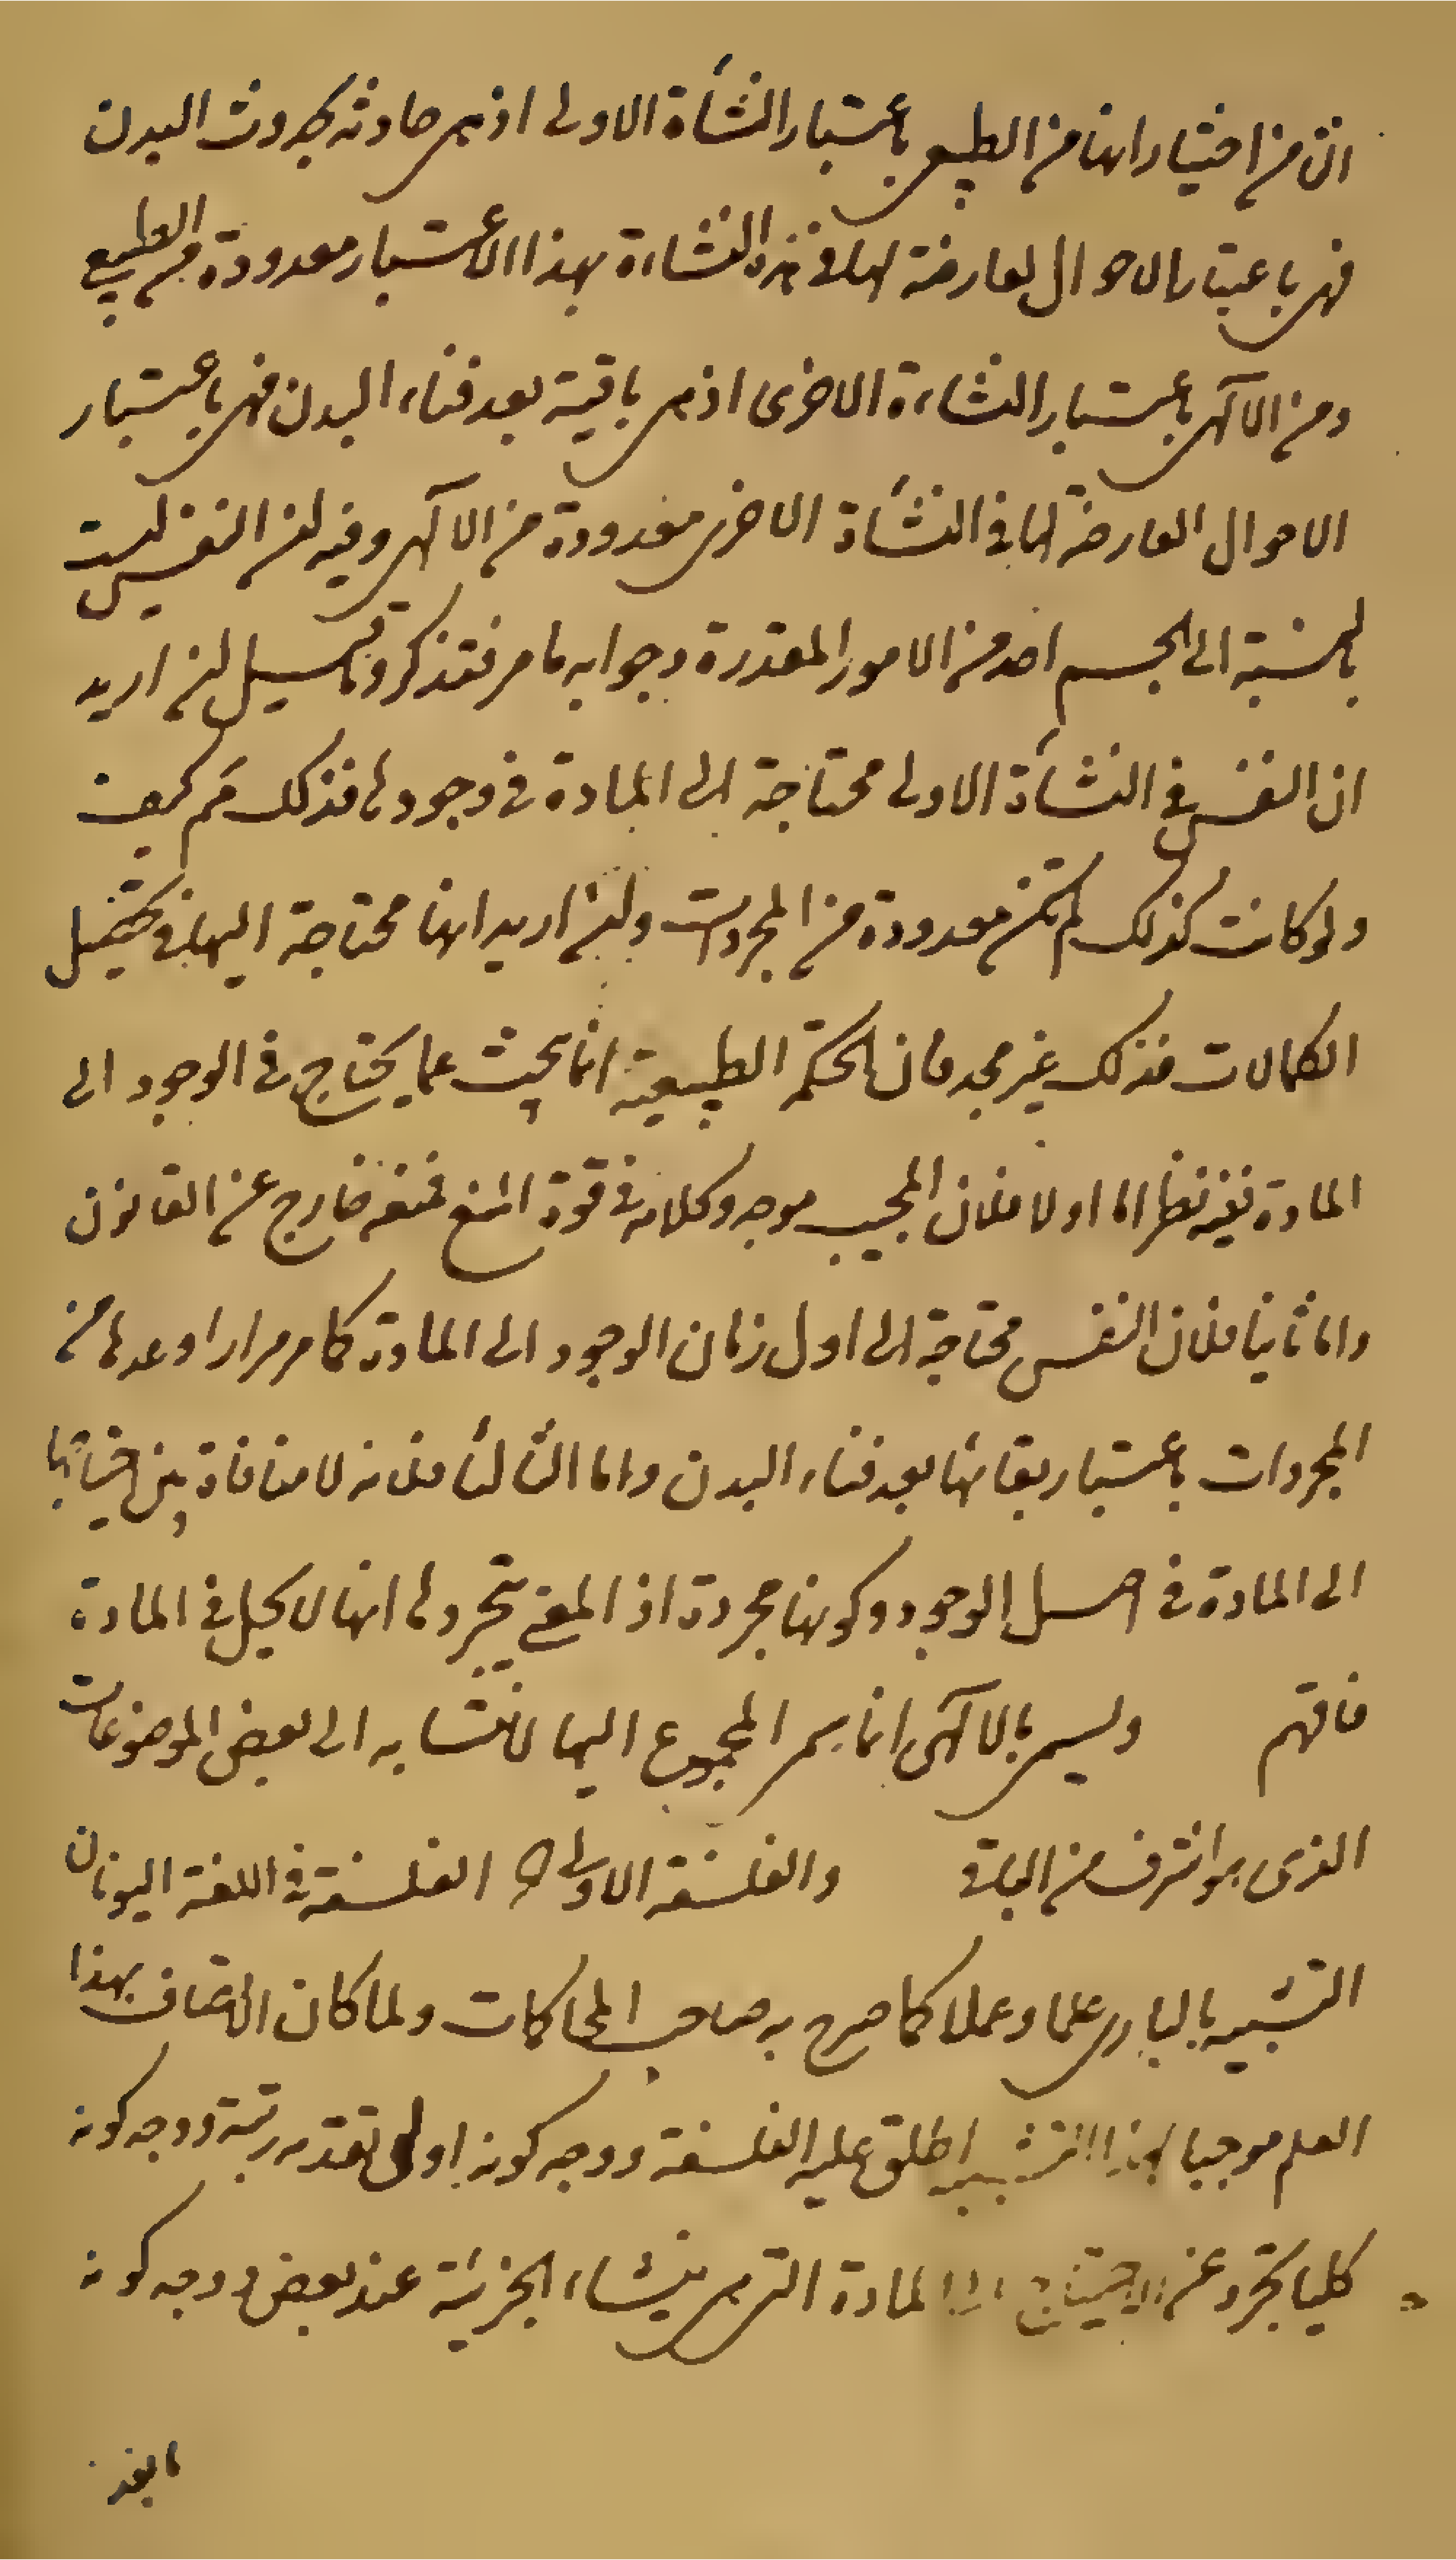 الثا من اختيار انها من الطبيعي باعتبار النشأة الاولى اذ هى حادثة بحدوث البدن
فهى باعتبار الاحوال العارضة لها فى هذه النشاءة بهذا الاعتبار معدودة من الطبيعي
ومن الآلهى باعتبار النشاءة الاخرى اذ هى باقية بعد فناء البدن فهى باعتبار
الاحوال العارضة لها فى النشأة الاخرى معدودة من الالهى وفيه ان النفس ليست
بالنسبة الى الجسم احد من الامور المقدرة وجوابه ما مر فتذكر وما قيل ان اريد
ان النفس فى النشأة الاولى محتاجة الى المادة فى وجودها فذلك مم كيف
ولو كانت كذلك لم تكن معدودة من المجردات وان اريد انها محتاجة اليها فى تحصيل
الكمالات فذلك غير مجد فان الحكمة الطبيعية انما يبحث عما يحتاج فى الوجود الى
المادة ففيه نظر اما اولا فلان المجيب موجه وكلامه فى قوة المنع فمنعه خارج عن القانون
واما ثانيا فلان النفس محتاجة الى اول زمان الوجود الى المادة كما مر مرارا وعدها من
المجردات باعتبار بقائها بعد فناء البدن واما الثالثا فلانه لا منافاة بين احتياجها
الى المادة فى اصل الوجود وكونها مجردة اذ المعنى بتجردها انها لا يحل فى المادة
فافهم وليس بالالهى انما يسمى المجموع اليها لانتسابه الى بعض الموضوعات
الذى هو اشرف من الباقى والفلسفة الاولى الفلسفة فى اللغة اليونان
التشبيه بالبارى علما وعملا كما صرح به صاحب المحاكات ولما كان الاتصاف بهذا
العلم موجبا لهذا التشبيه اطلق عليه الفلسفة ووجه كونه اولى تقدمه رتبة ووجه كونه
كليا تجرد عن الاحتياج الى المادة التى هى منشاء الجزئية عند بعض ووجه كونه
ما بعد